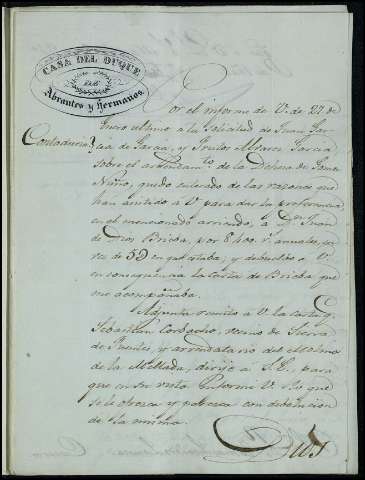 CASA DEL DUQUE
DE
Abrantes y Hermanos
Contaduría
Por el informe de V. de 27 de
Enero ultimo a la solicitud de Juan Gar-
cia de Garcia, y Frutos Alvarez Garcia
sobre el arrendam.to de la Dehesa de Gomez
Nuño, quedo enterado de las razones que
han asistido a V. para dar la preferencia
en el mencionado arriendo, a D.n Juan
de Dios Brieba, por 8400 r.s annuales, en
vez de que pagaba, y debuelbo a V.
en consequencia la carta de Brieba que
me acompañaba.
Adjunta remito a V. la carta q.
Sebastian Corbacho, vecino de Sierra
de Fuentes y arrendatario del Molino
de la Mellada, dirije a S.E. para
que en su vista informe V. lo que
se le ofrezca y parezca con debolucion
de la misma.
Dios